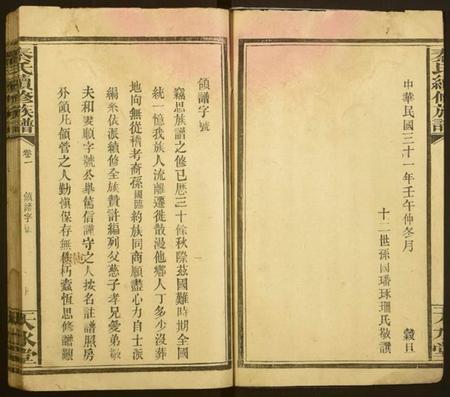 秦氏續修族譜
天水堂
中華民國三十一年壬午仲冬月 穀旦
十二世孫國璠球珊氏敬撰
領譜字號
竊思族譜之修已歷三十餘秋際茲國難時期全國
統一憶我族人流離遷徙散漫他鄉人丁多少沒葬
地向無從稽考裔孫國臨約族同商願盡心力自士派
編系依派續修全族贊許編列父慈子孝兄愛弟敬
夫和妻順字號公舉舊信謹守之人按名註譜照房
外領凡領管之人勤慎保存無使朽蠹恆思修譜艱
秦氏續修族譜
卷一
領譜字號
天水堂